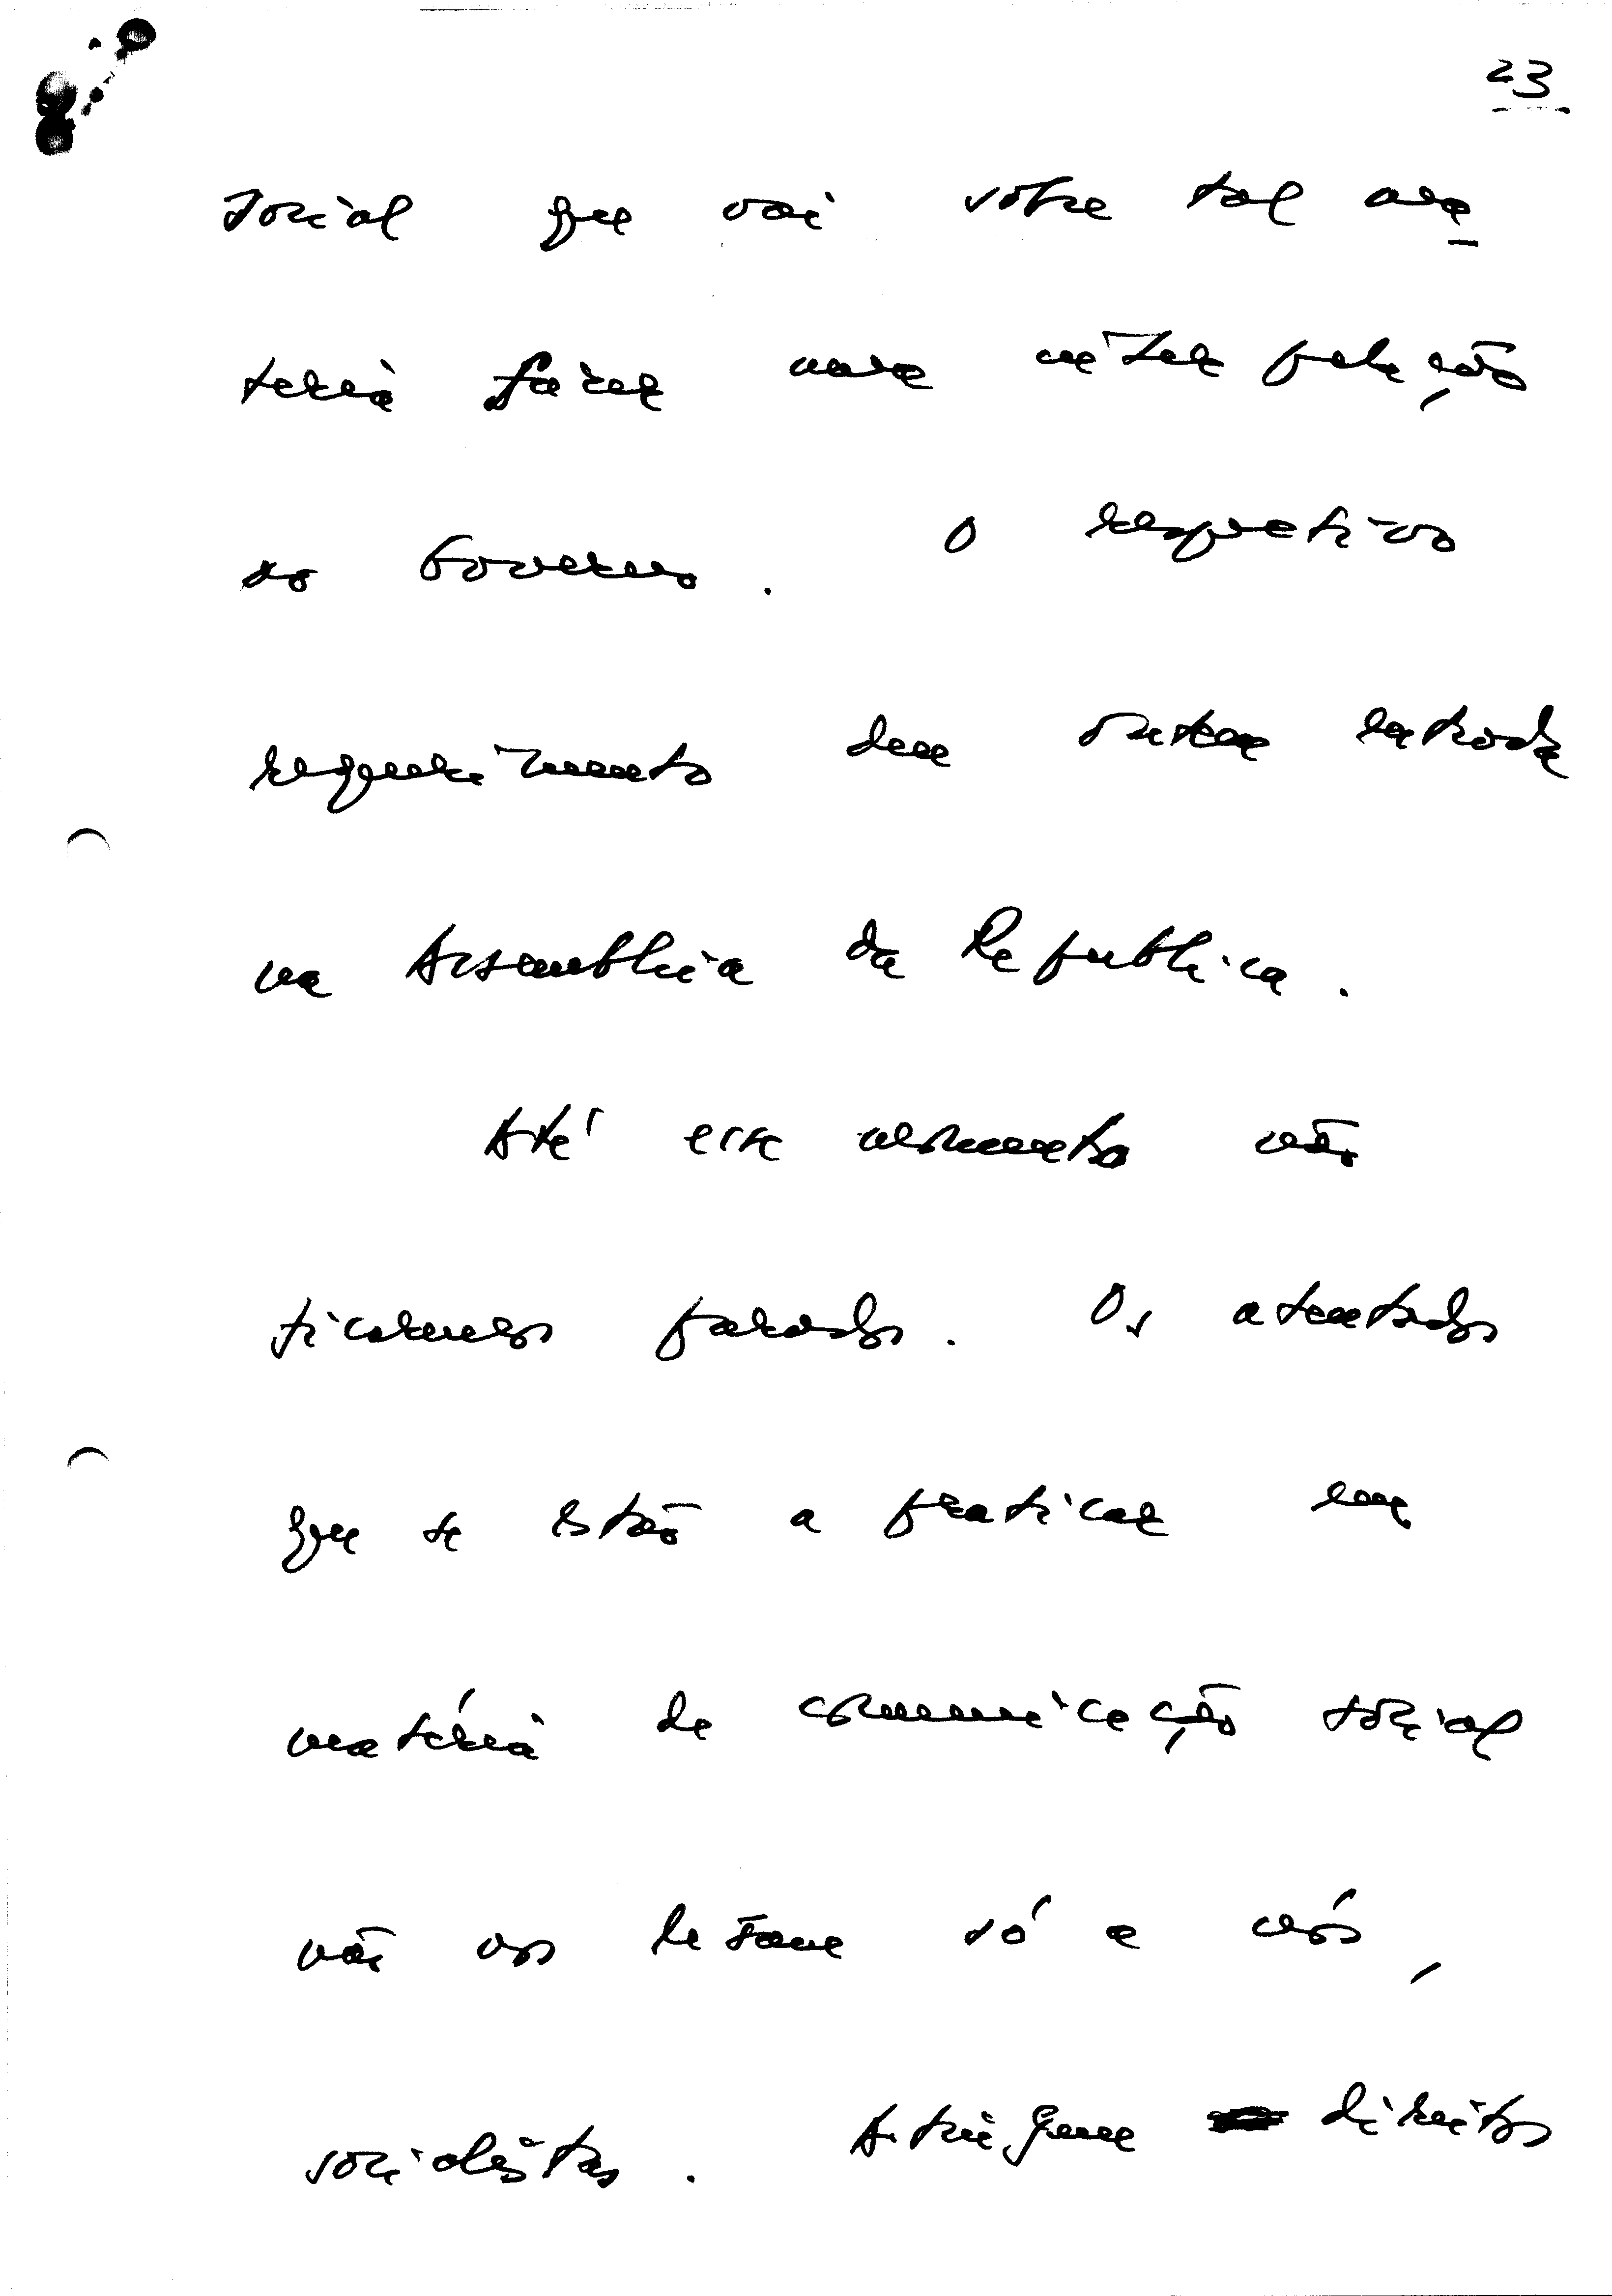 23
social que vai sobre tal ma-
téria fazer uma interpelação
ao Governo. O respectivo
requerimento deu ontem entrada
na Assembleia da Republica.
Até esse momento não
ficaremos parados. Os atentados
que se estão a praticar em
matéria de comunicação social
não nos lesam só a nós,
socialistas. Atingem direitos